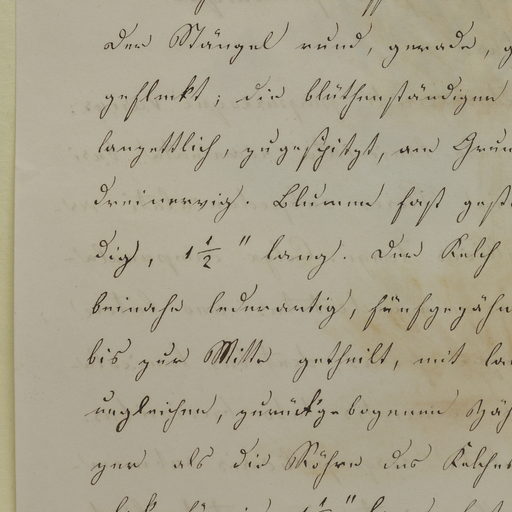 Der Stängel rund, gerade, g
gefleckt; die blüthenständigen
lanzettlich, zugespitzt, am Grun
dreinervig. Blumen fast gest
dig, 1 1/2 " lang. Der Kelch
beinahe lederartig, fünfgezähn
bis zur Mitte getheilt, mit la
ungleichen, zurückgebogenen Zäh
ger als die Röhre des Kelches